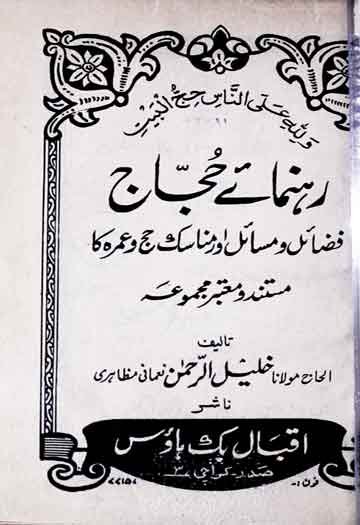 ولله على الناس حج البيت
رہنمائے حُجّاج
فضائل و مسائل اور مناسک حج و عمرہ کا
مستند و معتبر مجموعہ
تالیف
الحاج مولانا خلیل الرحمٰن نعمانی مظاہری
ناشر
اقبال بک ہاؤس
صدر - کراچی ۳
فون :-